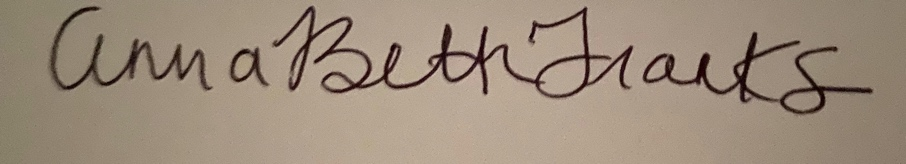 AnnaBeth Franks